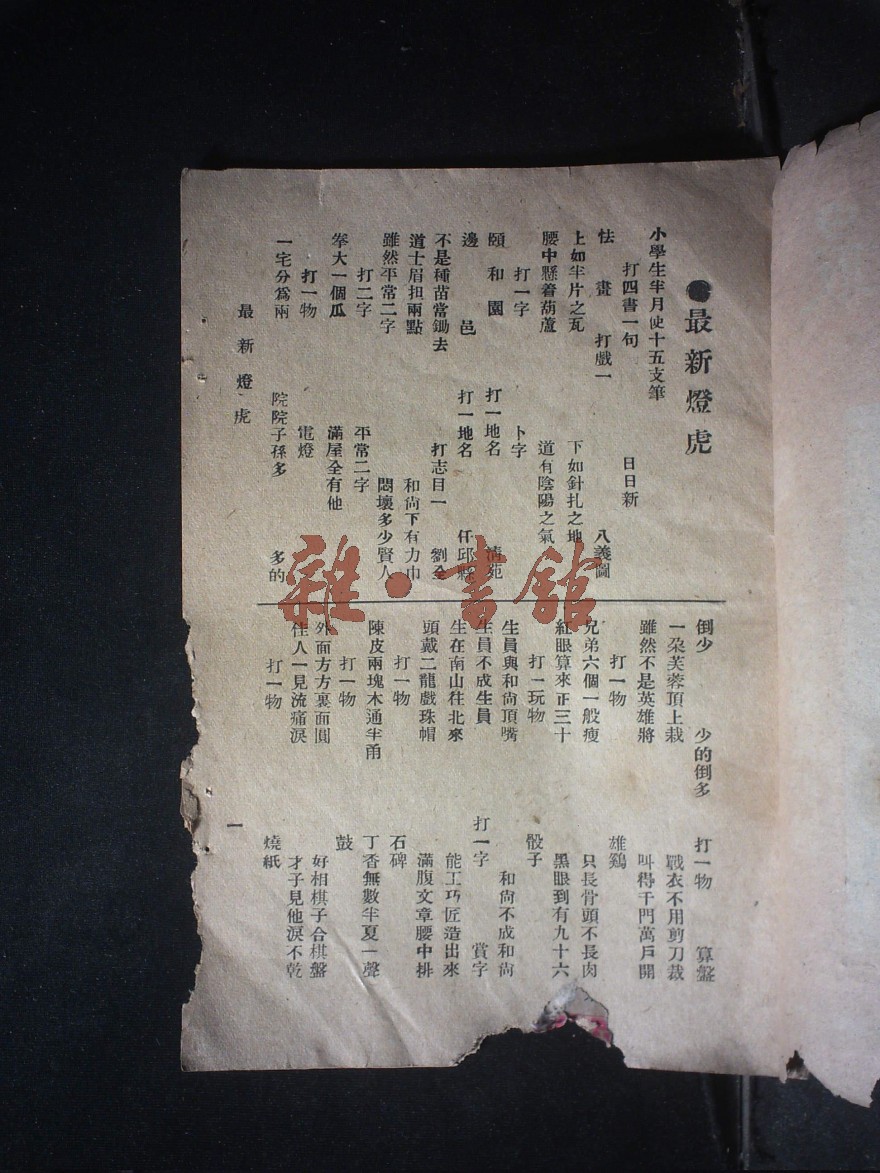 最新燈虎
小學生半月使十五支筆
打四書一句 日日新
怯畫 打戲一 八義圖
上如半片之瓦 下如針扎之地
腰中懸着葫蘆 道有陰陽之氣
打一字 卜字
頤和園 打一地名 清苑
邊邑 打一地名 任邱縣
不是種苗常鋤去 打志目一 劉全
道士眉担兩點 和尙下有力巾
雖然平常二字 悶壞多少賢人
打二字 平常二字
拳大一個瓜 滿屋全有他
打一物 電燈
一宅分爲兩 院院子孫多 多的
倒少 少的倒多 打一物 算盤
一朶芙蓉頂上栽 戰衣不用剪刀裁
雖然不是英雄將 叫得千門萬戶開
打一物 雄鷄
兄弟六個一般瘦 只長骨頭不長肉
紅眼算來正三十 黑眼到有九十六
打一玩物 骰子
生員與和尙頂嘴 和尙不成和尙
生員不成生員 打一字 賞字
生在南山往北來 能工巧匠造出來
頭戴二龍戲珠帽 滿腹文章腰中排
打一物 石碑
陳皮兩塊木通半甬 丁香無數半夏一聲
打一物 鼓
外面方方裏面圓 好相棋子合棋盤
佳人一見流痛淚 才子見他淚不乾
打一物 燒紙
最新燈虎 一
雜·書館